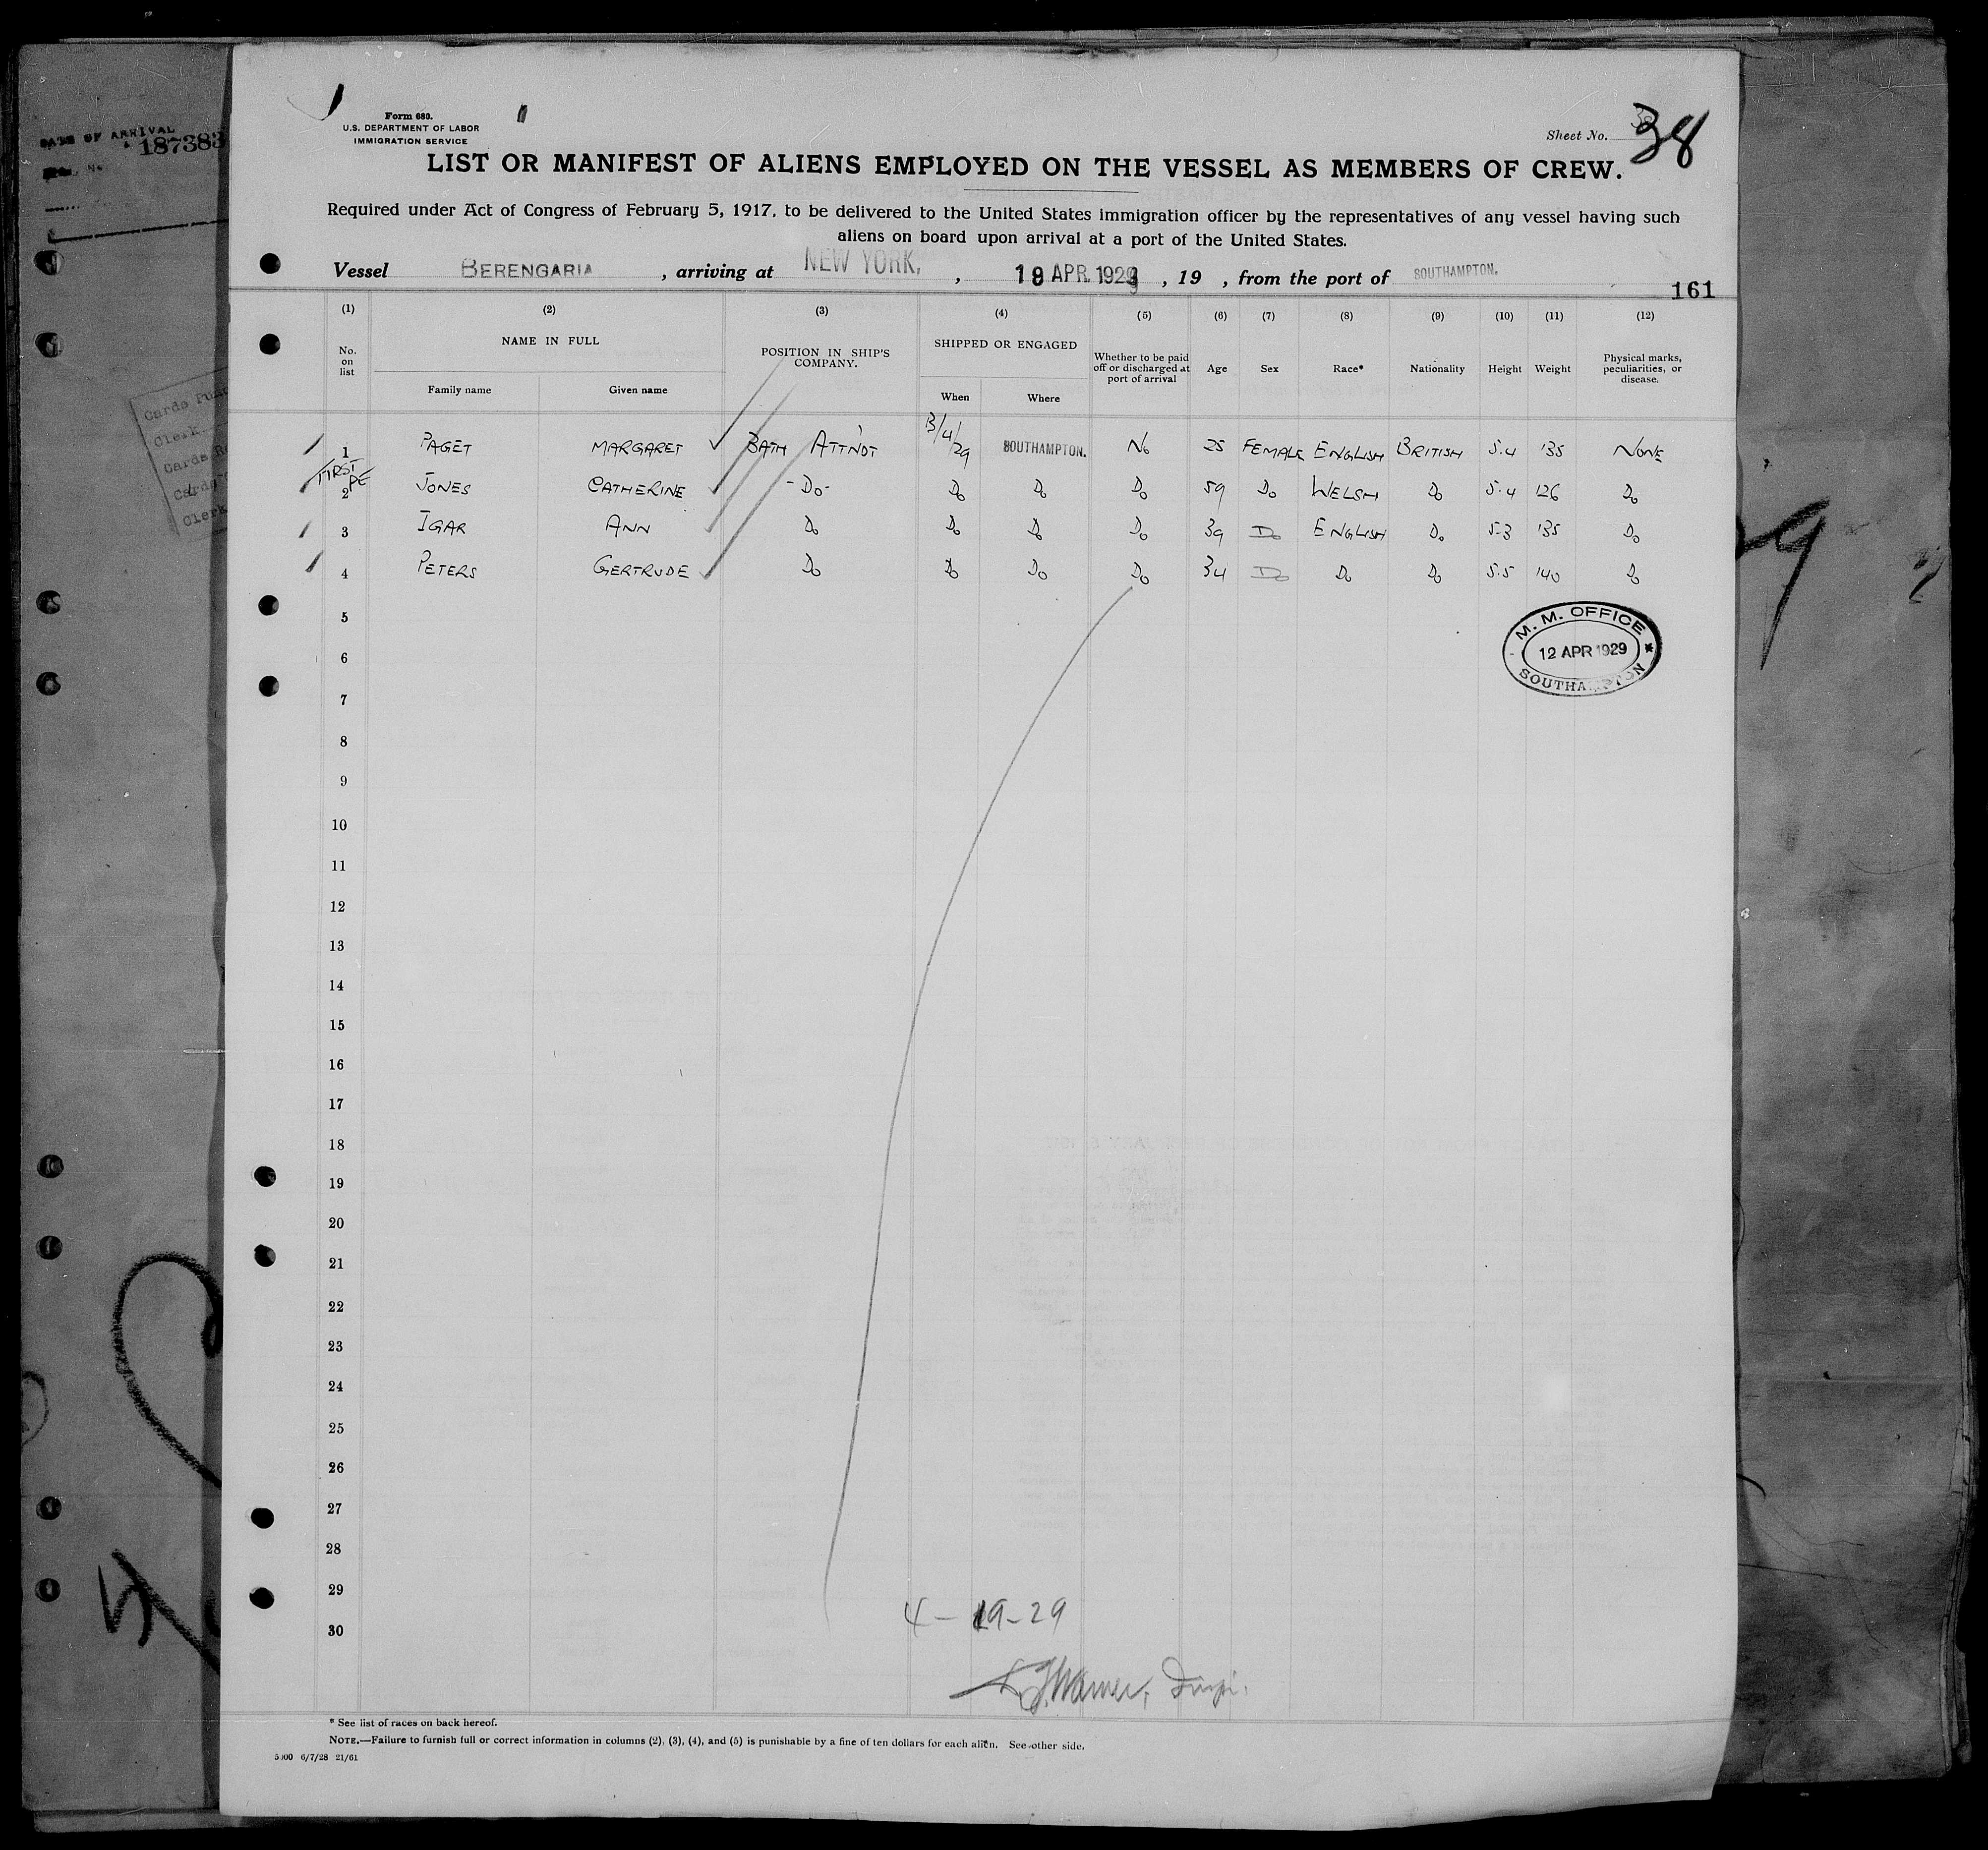 DATE OF ARRIVAL
187383
Cards Punc
Clerk
Cards Re
Cards
Clerk
Form 680.
U.S. DEPARTMENT OF LABOR
IMMIGRATION SERVICE
Sheet No. 38
LIST OR MANIFEST OF ALIENS EMPLOYED ON THE VESSEL AS MEMBERS OF CREW.
Required under Act of Congress of February 5, 1917, to be delivered to the United States immigration officer by the representatives of any vessel having such
aliens on board upon arrival at a port of the United States.
Vessel BERENGARIA , arriving at NEW YORK. , 19 APR. 1929 , 19 , from the port of SOUTHAMPTON.
161
(1) (2) (3) (4) (5) (6) (7) (8) (9) (10) (11) (12)
No. on list NAME IN FULL POSITION IN SHIP'S COMPANY. SHIPPED OR ENGAGED Whether to be paid off or discharged at port of arrival Age Sex Race* Nationality Height Weight Physical marks, peculiarities, or disease.
Family name Given name When Where
1 PAGET MARGARET BATH ATT'NDT 13/4/29 SOUTHAMPTON. No 25 FEMALE ENGLISH BRITISH 5.4 135 NONE
FIRST
2 JONES CATHERINE -Do- Do Do Do 59 Do WELSH Do 5.4 126 Do
3 IGAR ANN Do Do Do Do 39 Do ENGLISH Do 5-3 135 Do
4 PETERS GERTRUDE Do Do Do Do 34 Do Do Do 5.5 140 Do
M. M. OFFICE
12 APR 1929
SOUTHAMPTON
5
6
7
8
9
10
11
12
13
14
15
16
17
18
19
20
21
22
23
24
25
26
27
28
29
30
4-19-29
* See list of races on back hereof.
NOTE.—Failure to furnish full or correct information in columns (2), (3), (4), and (5) is punishable by a fine of ten dollars for each alien. See other side.
5000 6/7/28 21/61